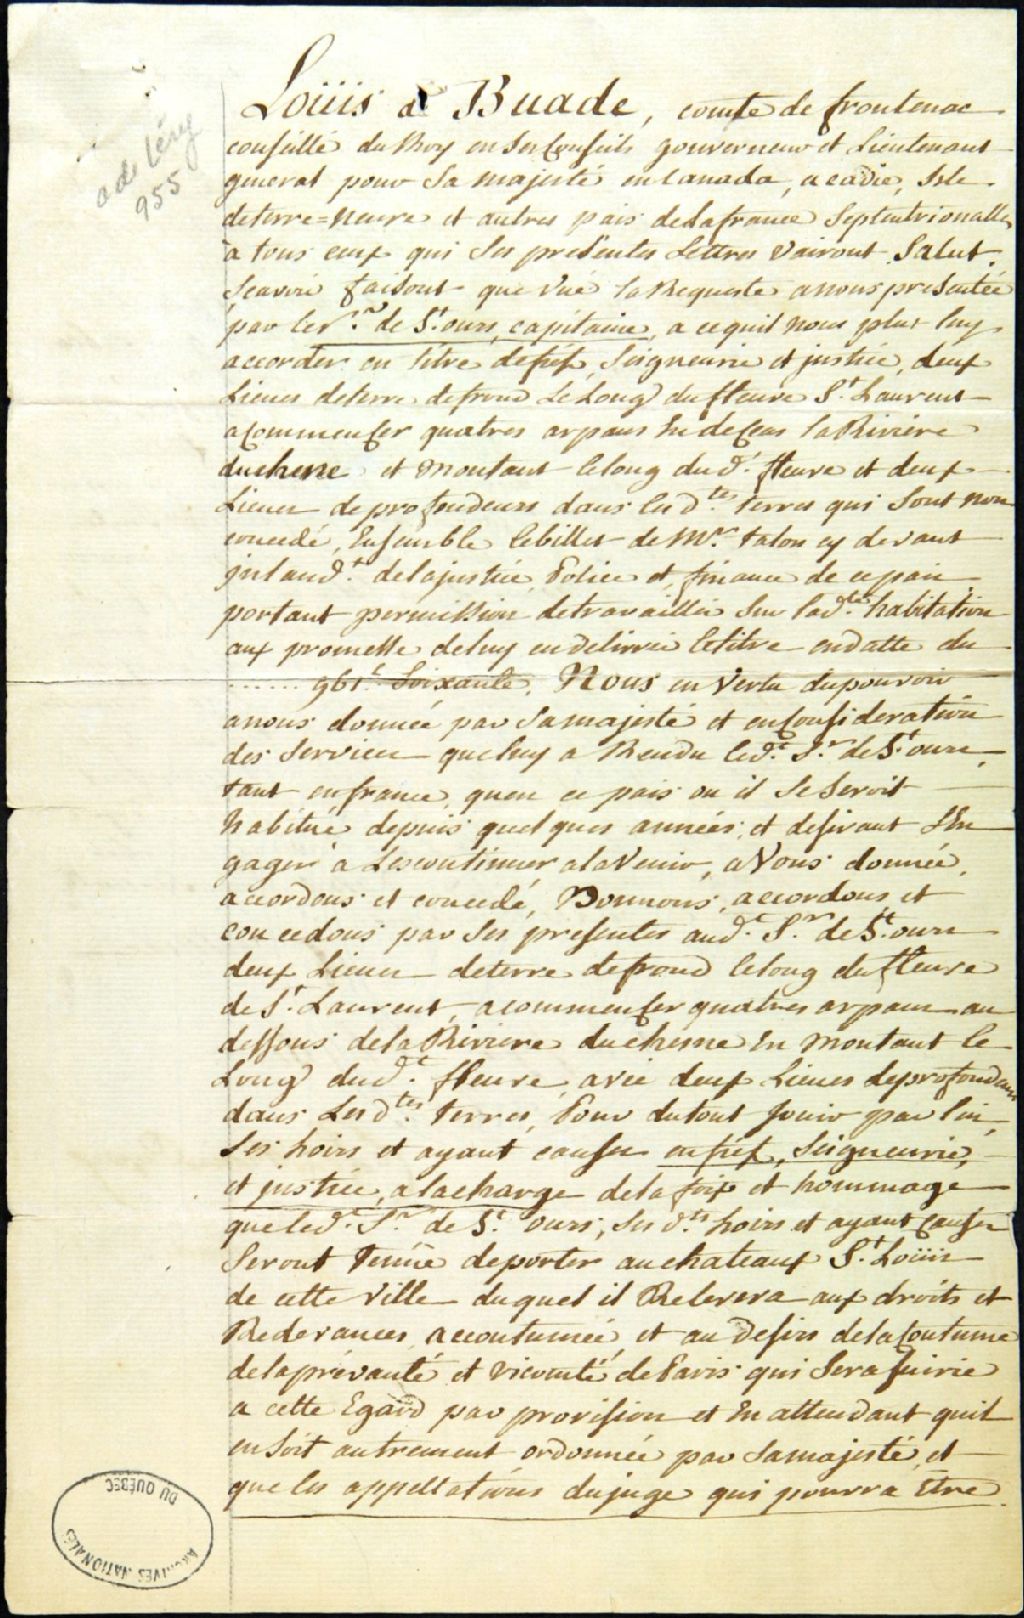 a de Léry
955
Loüis d Buade, comte de frontenac
conseillé du Roy en ses Conseils gouverneur et Lieutenant
general pour Sa majesté en Canada, acadie, Isle
deterre=neuve et autres païs delafrance Septentrionalle,
a tous ceux qui Ses presentes Lettres Vairont Salut.
Scavoir faisont que Vüé la Requeste anous presentée
par le Sr. de St. ours, capitaine, a cequil nous plut luy
accorder en titre defief, Seigneurie et justice, deux
Lieues deterre defrond Le Long dufleuve St. Laurent
acommenser quatres arpans au desous la Riviere
duchesne et montant lelong dud. fleuve et deux
Lieues de profondeurs dans lesdtes. terres qui Sont non
concedé, Ensemble lebillet de Mr. talon cy devant
jntandt. delajustice, Police et finance de cepais
portant permission detravailler Sur ladte. habitation
aux promesse deluy en delivrer letitre endatte du
...... 9bre. Soixante, Nous en Vertu dupouvoir
anous donnée par Samajesté et enConsideration
des Services queluy a Rendu ledt. Sr. de St. ours,
tant enfrance, quen ce païs ou il Se Seroit
habitué depuis quelques années, et desirant L'En
gager à Lescontinuer alaVenir, aVons donnée,
accordons et concedé, Donnons, accordons, et
concedons par Ses presentes audt. Sr. de St. ours
deux Lieues deterre defrond lelong du fleuve
de St. Laurent, acommenser quatres arpans au
dessous dela Riviere duchesne En montant le
Long dudt. fleuve, avec deux Lieues deprofondeur
dans Lesdtes. terres, Pour dutout Jouir par lui,
Ses hoirs et ayant causes enfief, Seigneurie,
et justice, alacharge dela foix et hommage
queledt. Sr. de St. ours, Ses dts. hoirs et ayant Causes
Seront tenüe deporter auchateaux St. Loüis
de cette Ville duquel il Relevera aux droits et
Redevances accoutumée, et au Desirs delaCoutume
delaprevauté et vicomté deParis qui Sera Suivie
a cette Egard par provision et En attendant quil
ensoit autrement ordonnée par Samajesté, et
que les appellations dujuge qui pourra Etre
ARCHIVES NATIONALES
DU QUÉBEC